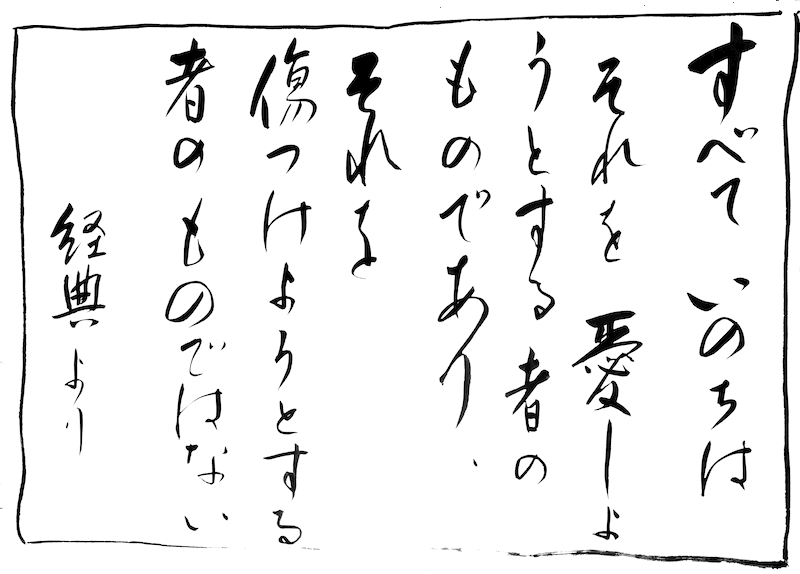 すべていのちは
それを愛しよ
うとする者の
ものであり、
それを
傷つけようとする
者のものではない
経典より